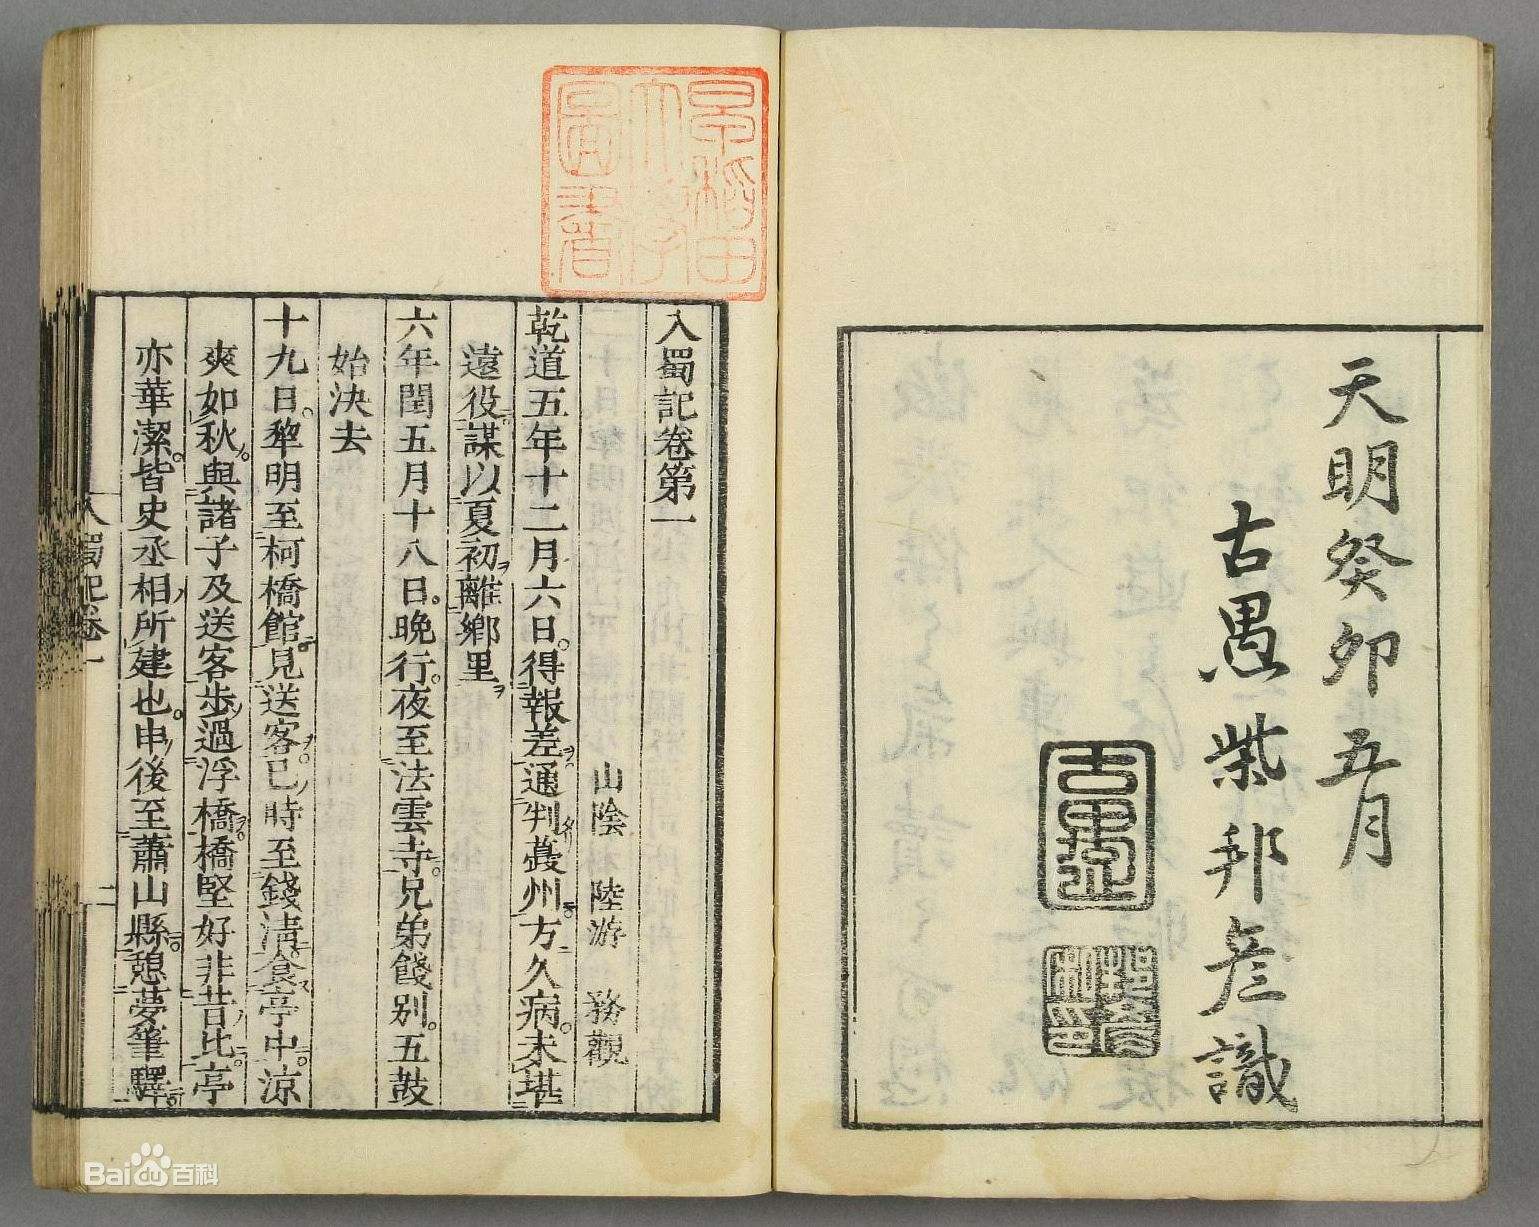 天明癸卯五月
古愚柴邦彦識
早稲田
大學
圖書
入蜀記卷第一
山陰 陸游 務觀
乾道五年十二月六日。得報差通判夔州方久病。未堪
遠役。謀以夏初離鄉里
六年閏五月十八日。晩行。夜至法雲寺。兄弟餞别。五鼓
始決去
十九日。犂明至柯橋館。見送客。巳時至錢淸。食亭中。涼
爽如秋。與諸子及送客步過浮橋。橋堅好非昔比。亭
亦華潔。皆史丞相所建也。申後至蕭山縣。憩夢筆驛
入蜀記卷一
二
Baidu百科